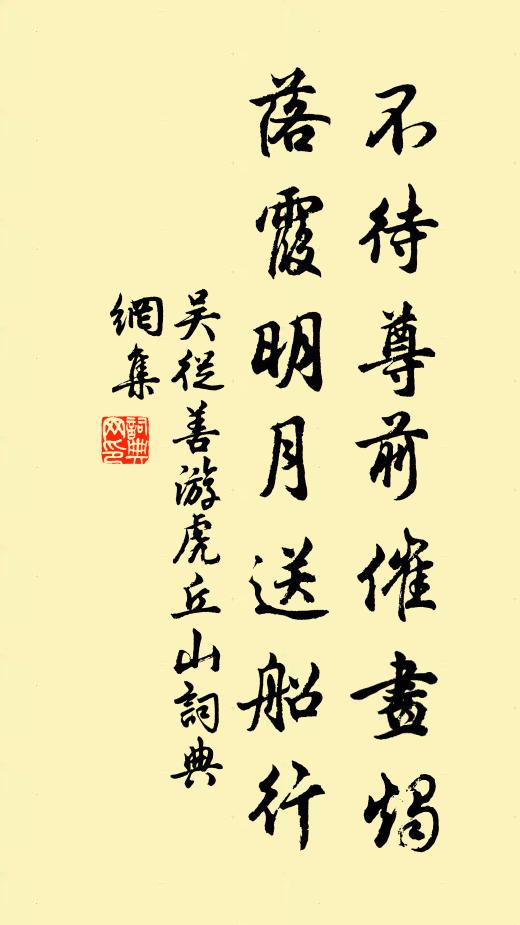 不待尊前催畫燭
落霞明月送船行
吴從善游虎丘山詞典
網集
詞典
网印